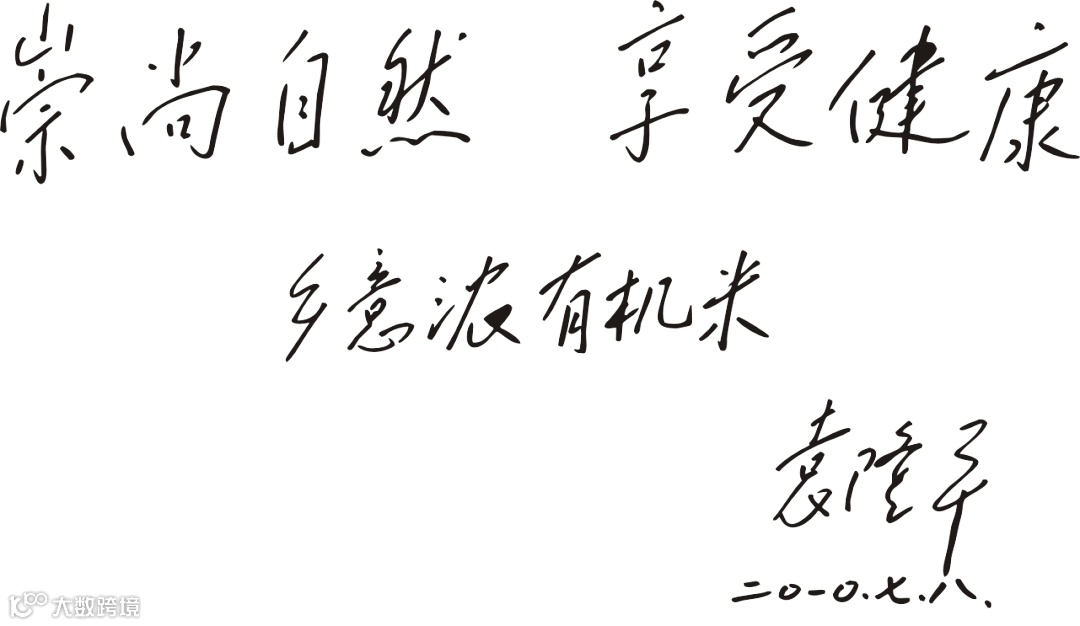 崇尚自然 享受健康
乡意浓有机米
袁隆平
二〇一〇.七.八.
大数跨境